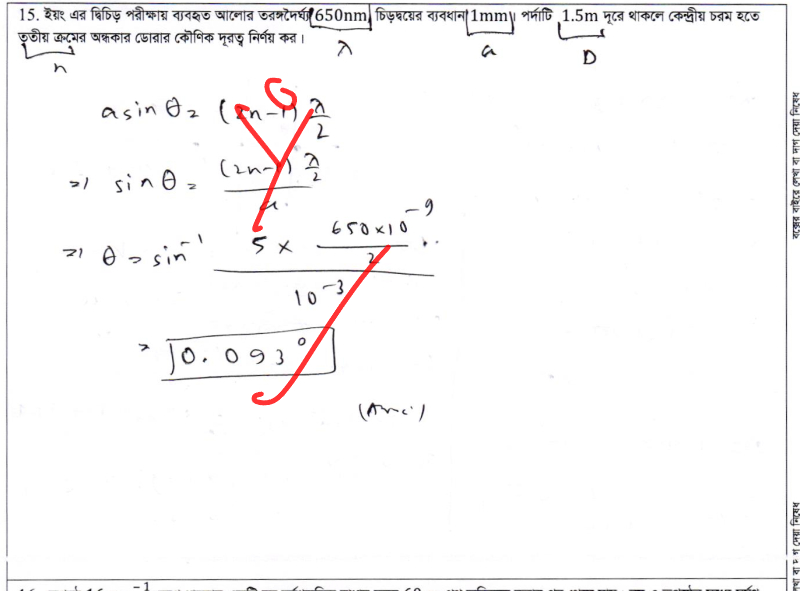 15. ইয়ং এর দ্বিচিড় পরীক্ষায় ব্যবহৃত আলোর তরঙ্গদৈর্ঘ্য 650nm, চিড়দ্বয়ের ব্যবধান 1mm। পর্দাটি 1.5m দূরে থাকলে কেন্দ্রীয় চরম হতে
তৃতীয় ক্রমের অন্ধকার ডোরার কৌণিক দূরত্ব নির্ণয় কর।
n λ a D
a sin θ = (2n-1) λ/2
=> sin θ = (2n-1) λ/2 / a
=> θ = sin⁻¹ 5 × 650×10⁻⁹/2 / 10⁻³
= 0.093°
(Ans:)
বক্সের বাইরে লেখা বা দাগ দেয়া নিষেধ